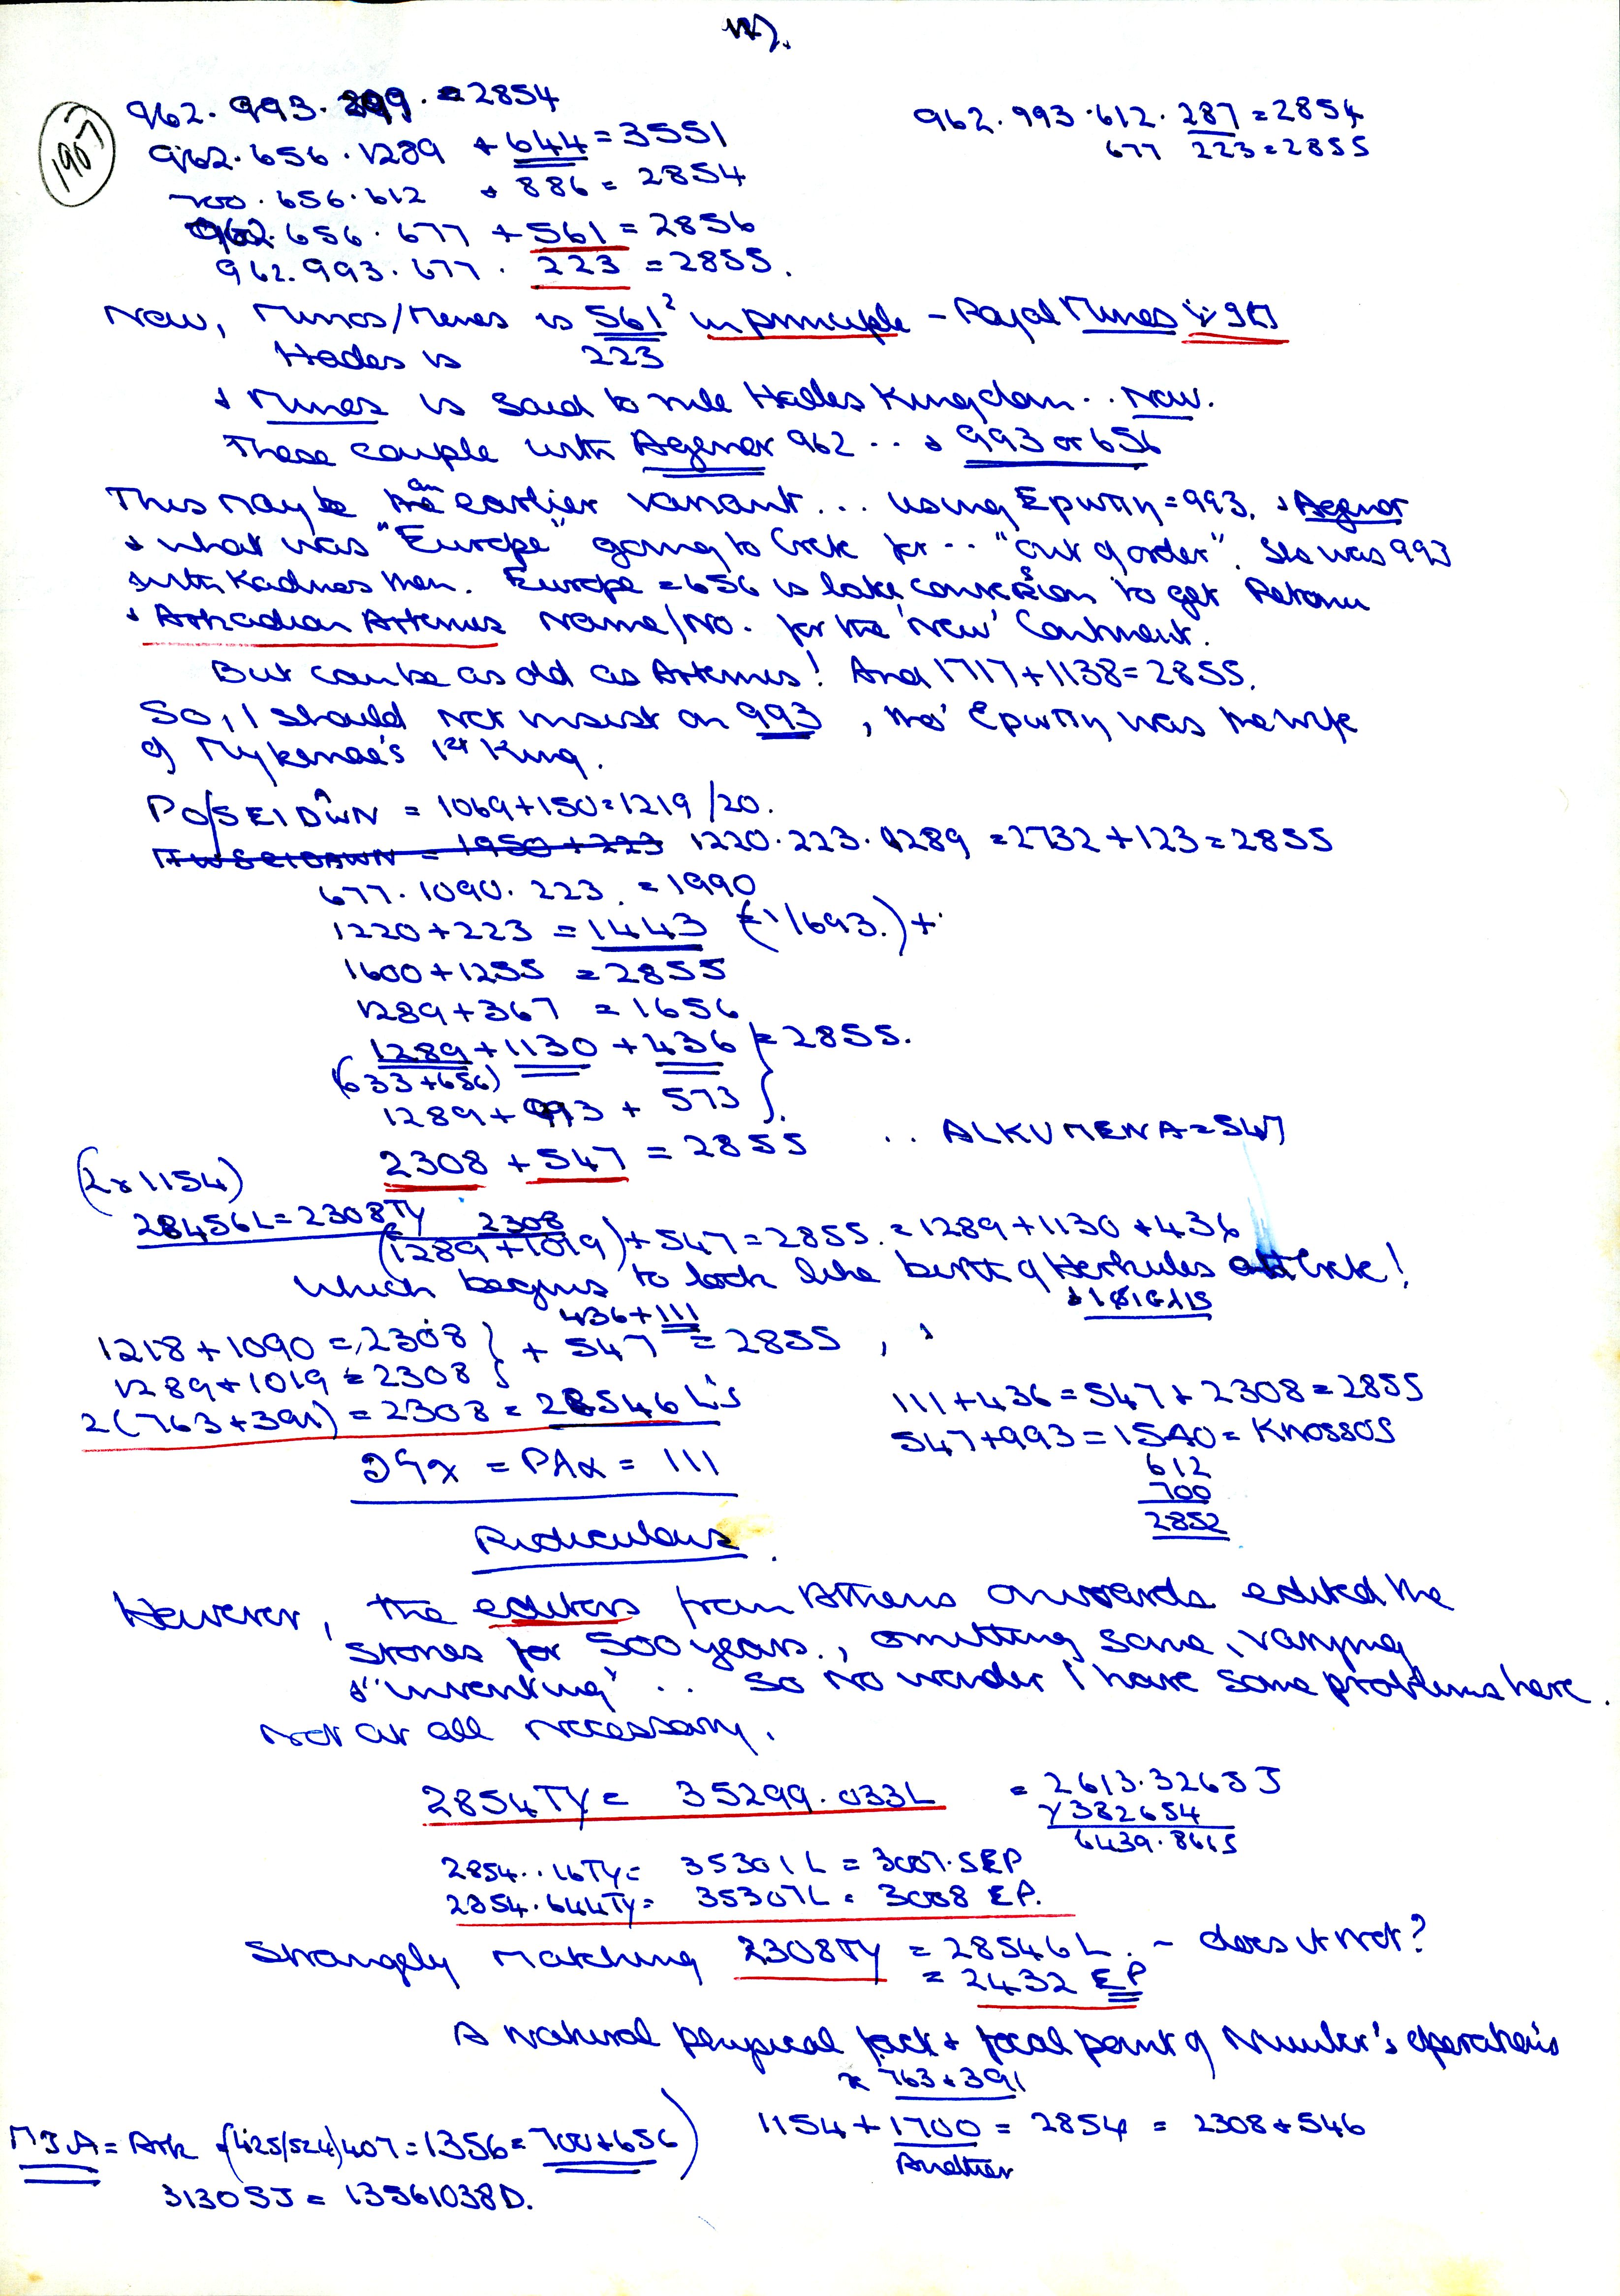 1907
962. 993. 899. = 2854
962. 993. 612. 287 = 2854
677 223 = 2855
962. 656. 1289 + 644 = 3551
700. 656. 612 + 886 = 2854
962. 656. 677 + 561 = 2856
962. 993. 677. 223 = 2855.
Now, Minos/Menes is 561² in principle - Royal Mines
Hades is 223
+ Mines is said to rule Hades Kingdom .. Now.
These couple with Agenor 962 .. + 993 or 656
This may be an earlier variant ... using Epurry = 993. + Agenor
+ what was "Europe" going to Crete for .. "out of order". She was 993
with Kadmos then. Europe = 656 is late conversion to get
+ Arkadian Artemis Name/No. for the 'New' Continent.
But can be as old as Artemis! And 1717 + 1138 = 2855.
So, I should not insist on 993, tho' was the wife
of Mykenae's 1st King.
PO/SEIDWN = 1069 + 150 = 1219 /20.
1220. 223. 1289 = 2732 + 123 = 2855
677. 1090. 223. = 1990
1220 + 223 = 1443 (= 1/693.) +
1600 + 1255 = 2855
1289 + 367 = 1656
1289 + 1130 + 436 } = 2855.
(633 + 656)
1289 + 993 + 573 }.
.. ALKUMENA = 547
2308 + 547 = 2855
(2 x 1154)
28456L = 2308TY 2308
(1289 + 1019) + 547 = 2855. = 1289 + 1130 + 436
Which begins to look like birth of Herkules at Crete!
436 + 111
1218 + 1090 = 2308 } + 547 = 2855,
1289 + 1019 = 2308 }
2(763 + 391) = 2308 = 28546 L's
111 + 436 = 547 + 2308 = 2855
547 + 993 = 1540 = KNOSSOS
612
700
2852
= PAX = 111
Ridiculous.
However, the editors from Athens onwards edited the
stories for 500 years., omitting some, varying
+ "inventing" .. So no wonder I have some problems here.
Not at all necessary.
2854TY = 35299.033L = 2613.326SJ
382654
6439.8615
2854..16TY = 35301L = 3007.5EP
2854.644TY = 35307L = 3008 EP.
Strangely matching 2308TY = 28546L. - does it not?
= 2432 EP
A natural physical fact + focal point of operations
763 + 391
1154 + 1700 = 2854 = 2308 + 546
Another
= Ark (425/524) 407 = 1356 = 700 + 656)
3130SJ = 13561038D.